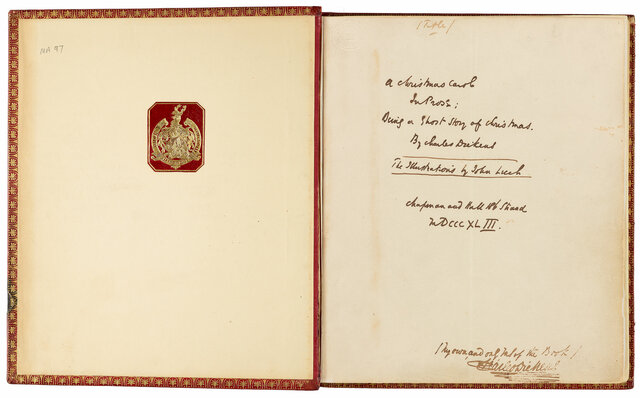 MA 97
(Title)
A Christmas Carol
In Prose;
Being a Ghost Story of Christmas.
By Charles Dickens
The Illustrations by John Leech
Chapman and Hall 186 Strand
MDCCCXLIII.
(My own, and only MS of the Book)
Charles Dickens